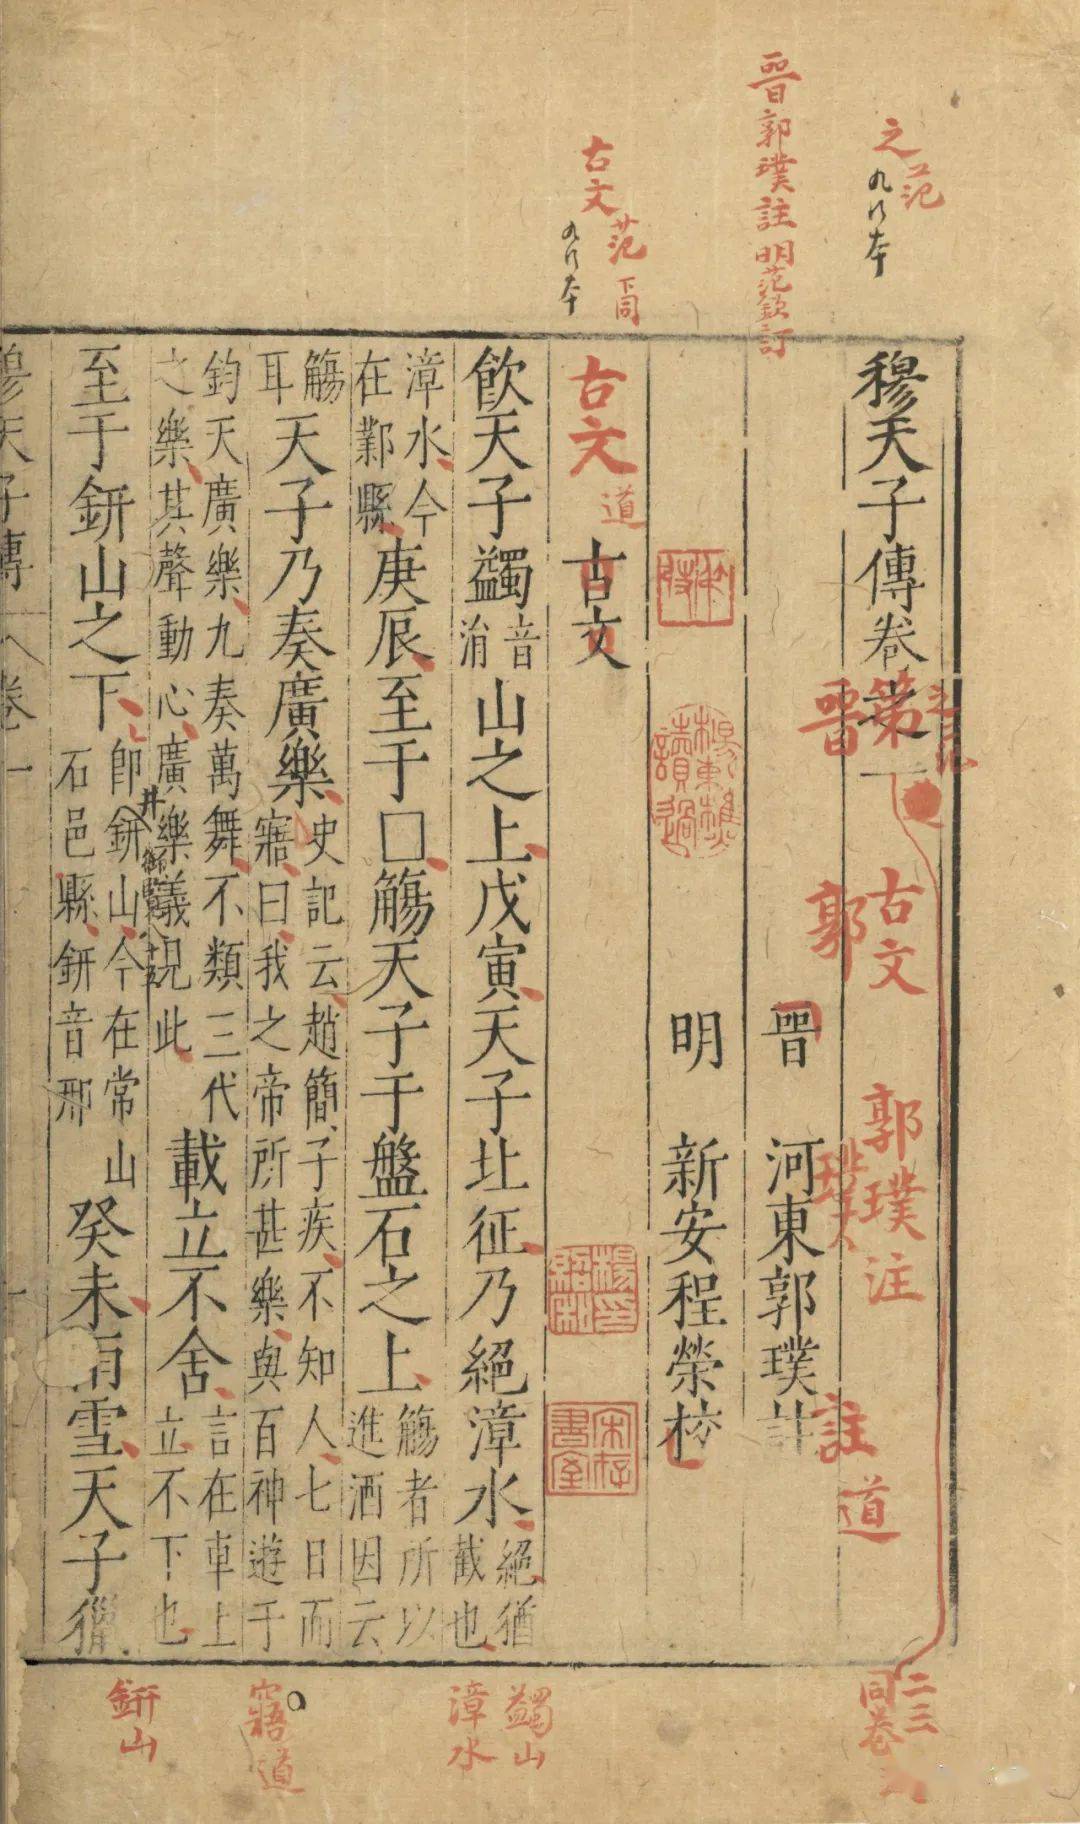 之范
九行本
晉郭璞註明范欽訂
古文范下同
九行本
穆天子傳卷之一
第
古文
郭璞注
道
晉
郭
璞
註
晉 河東郭璞註
明 新安程榮校
古文道
古文
飲天子蠲音涓山之上戊寅天子北征乃絕漳水絕猶截也
漳水今在鄴縣庚辰至于□觴天子于盤石之上觴者所以進酒因云
觴耳天子乃奏廣樂史記云趙簡子疾不知人七日而寤曰我之帝所甚樂與百神遊于
鈞天廣樂九奏萬舞不類三代之樂其聲動心廣樂義見此載立不舍言在車上立不下也
至于鈃山之下即鈃山今在常山石邑縣鈃音邢癸未雨雪天子獵
井
穆天子傳 卷一
二三
同卷
蠲山
漳水
寤道
鈃山